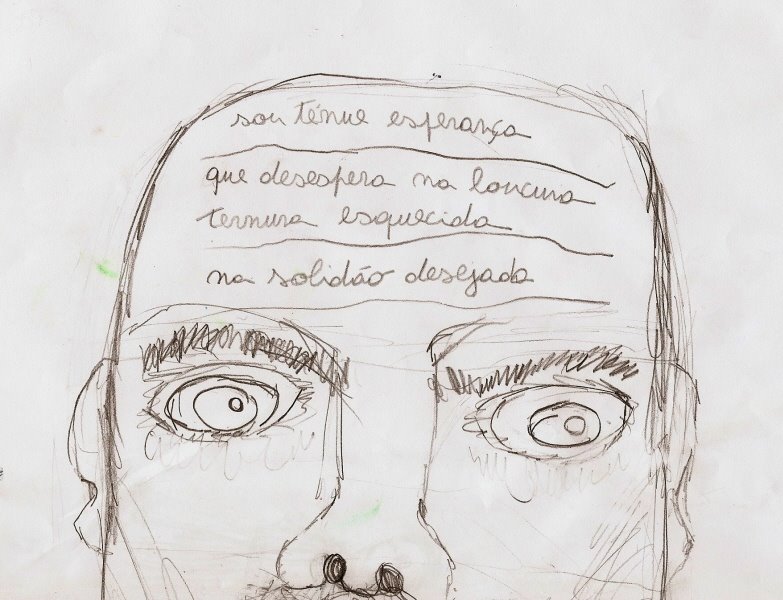 sou ténue esperança
que desespera na loucura
ternura esquecida
na solidão desejada